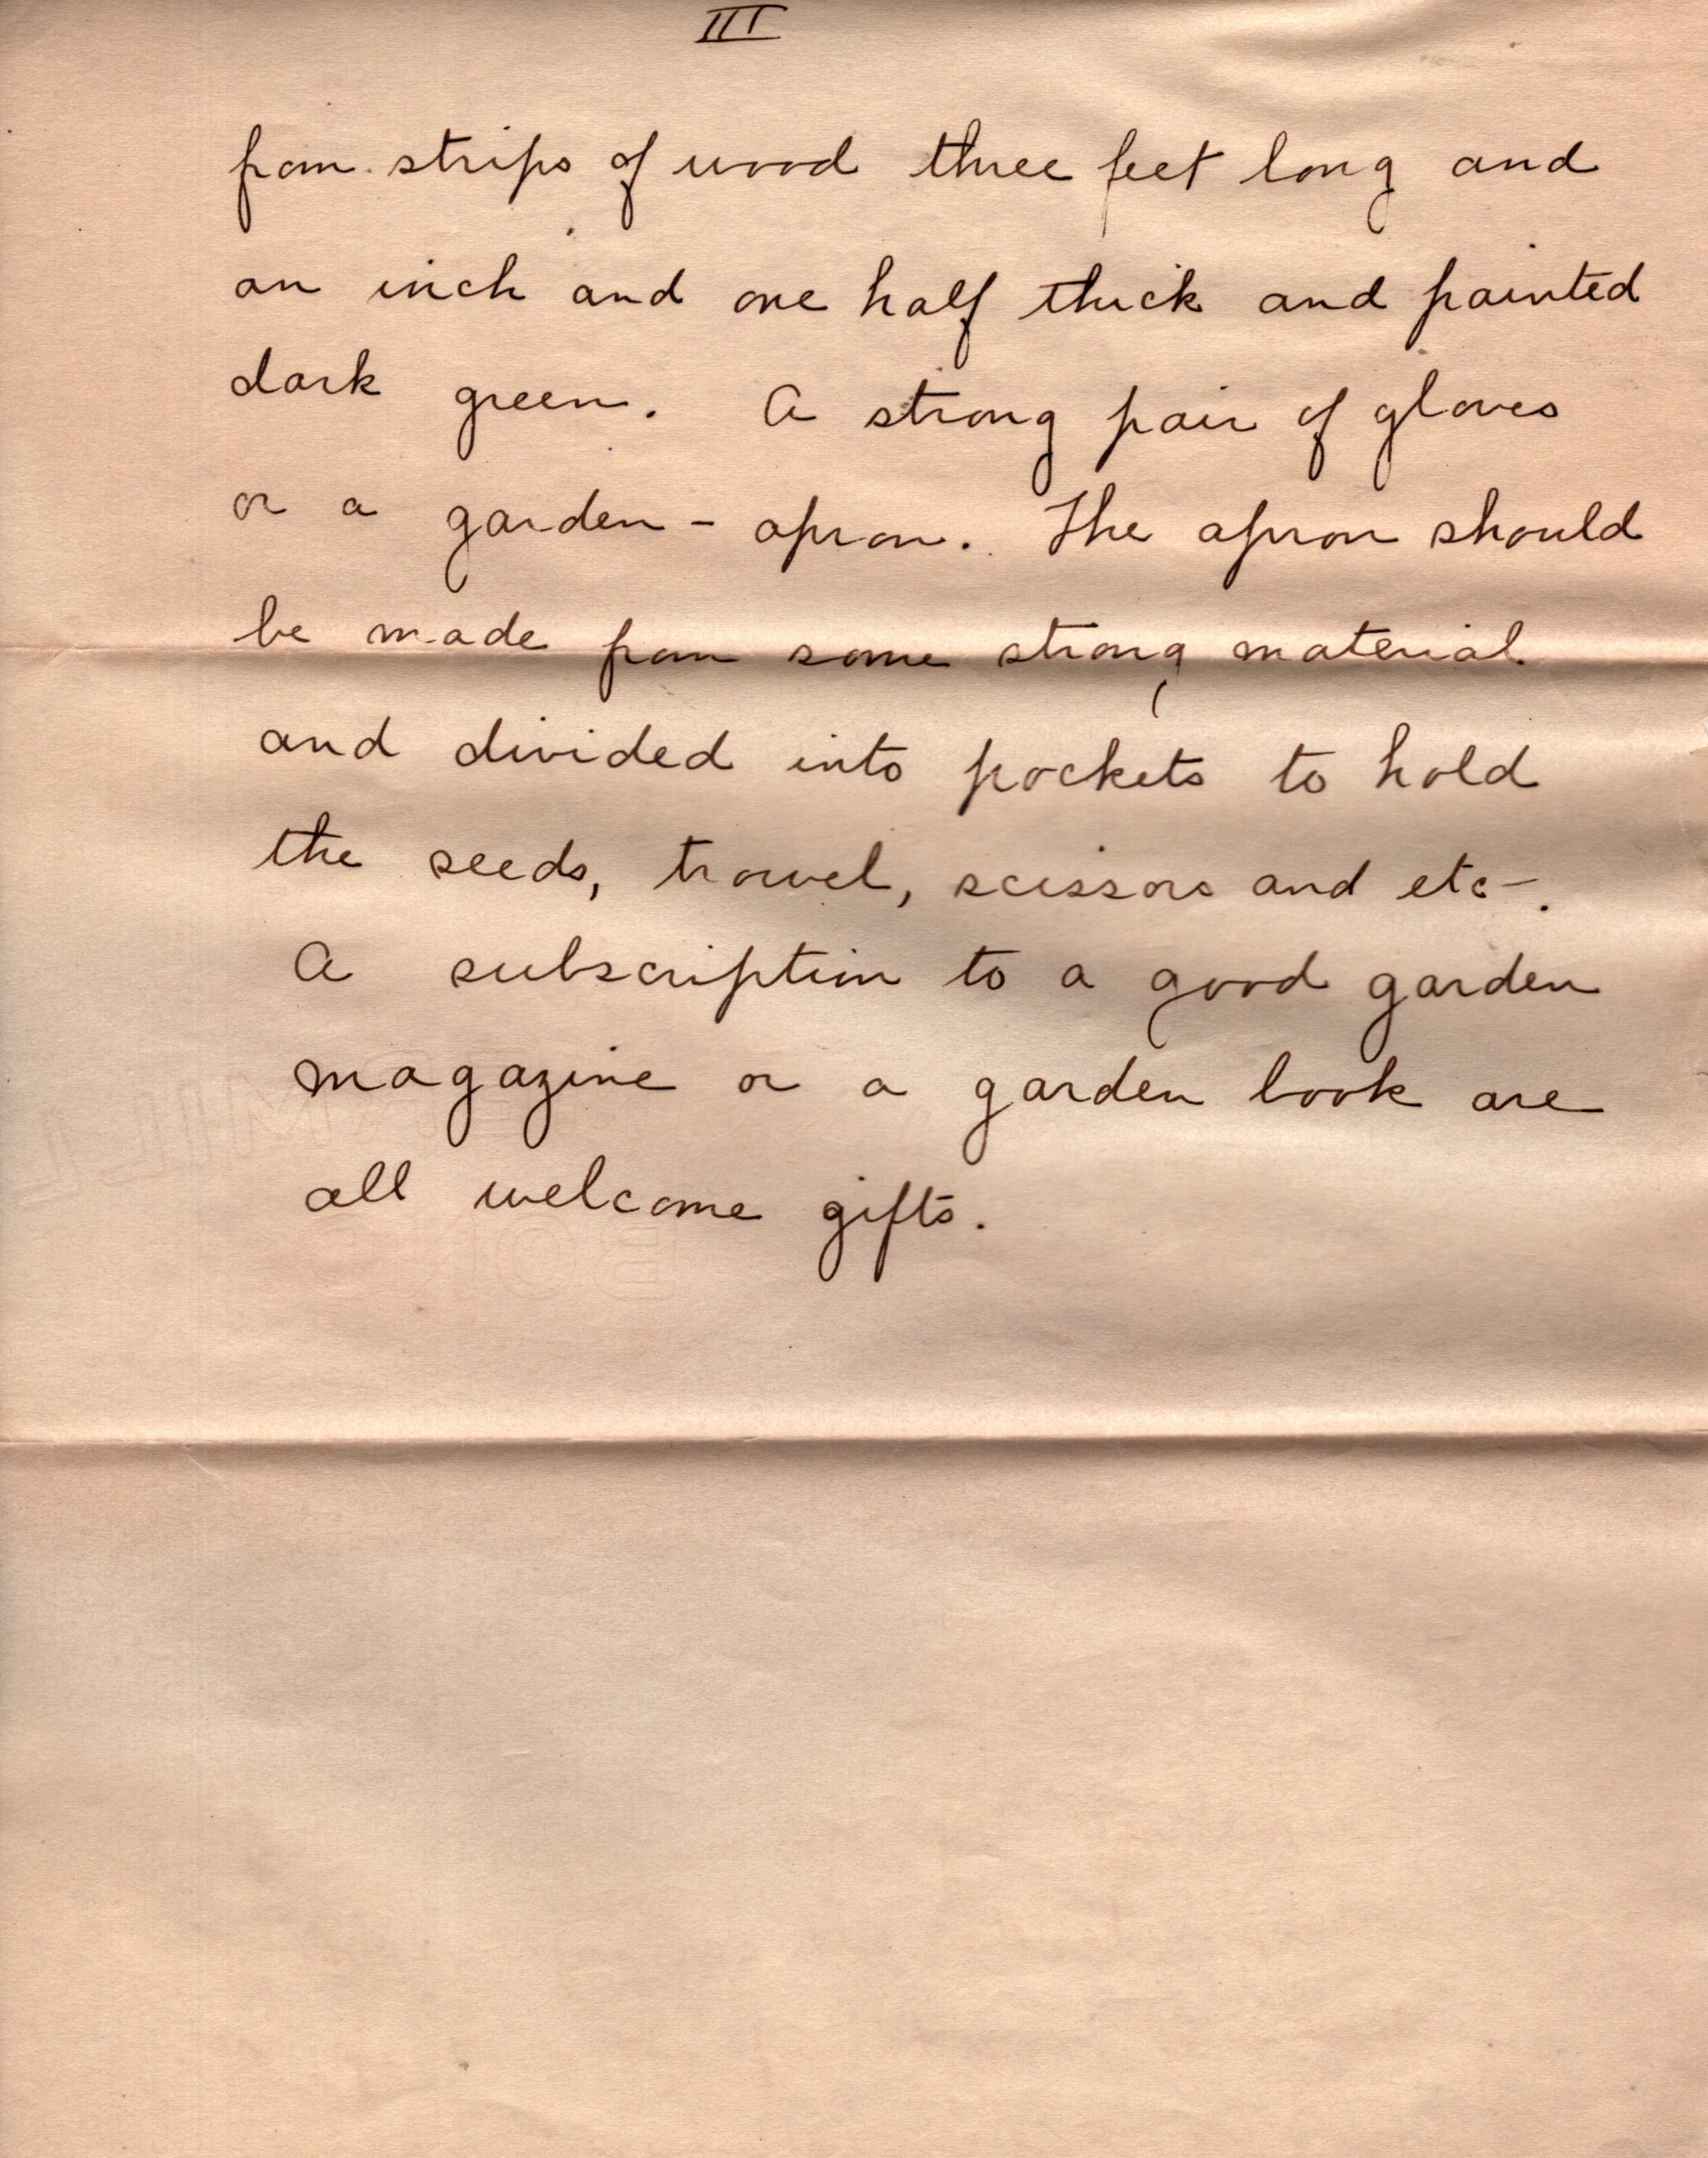 III
from strips of wood three feet long and
an inch and one half thick and painted
dark green. A strong pair of gloves
or a garden - apron. The apron should
be made from some strong material
and divided into pockets to hold
the seeds, trowel, scissors and etc-.
A subscription to a good garden
magazine or a garden book are
all welcome gifts.